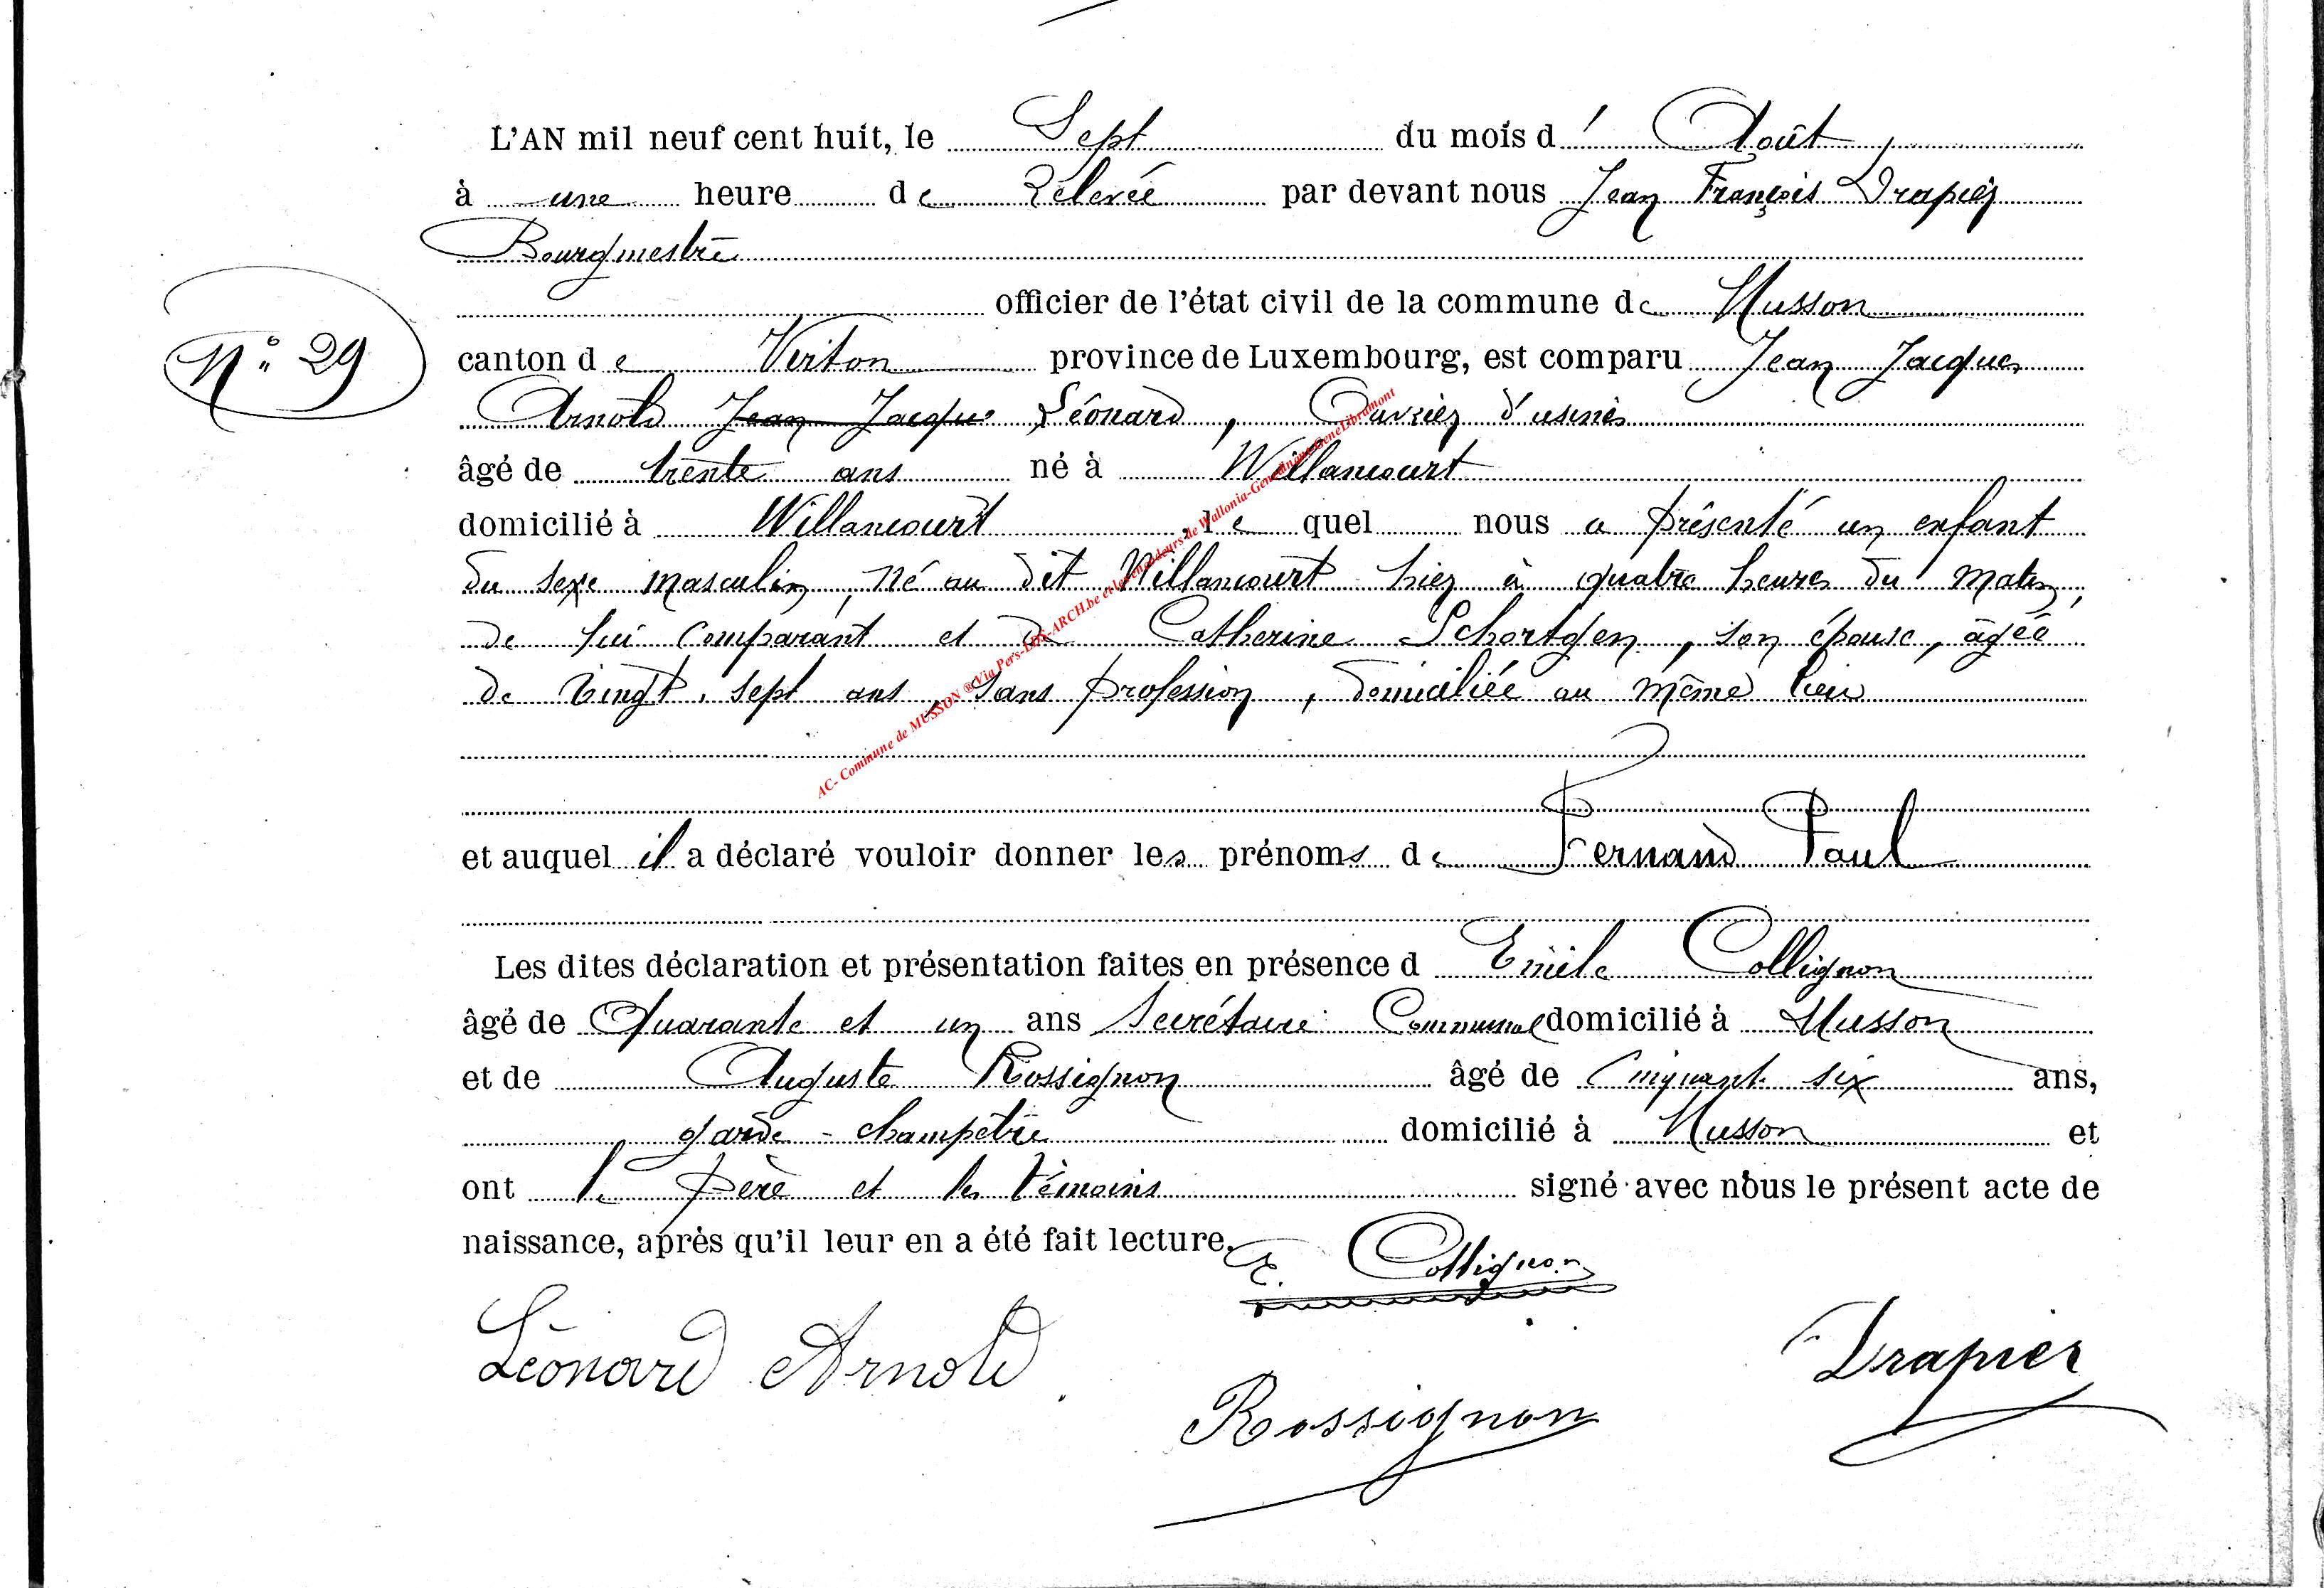 L'AN mil neuf cent huit, le Sept du mois d' Août
à une heure de Relevée par devant nous Jean François Drapier
Bourgmestre
officier de l'état civil de la commune de Musson
N° 29
canton de Virton province de Luxembourg, est comparu Jean Jacques
Arnold Jean Jacques Léonard, Ouvrier d'usines
âgé de trente ans né à Willancourt
domicilié à Willancourt, le quel nous a présenté un enfant
du sexe masculin, né au dit Willancourt hier à quatre heures du matin,
de lui comparant et de Catherine Schortgen, son épouse, âgée
de vingt-sept ans, sans profession, domiciliée au même lieu
et auquel il a déclaré vouloir donner les prénoms de Fernand Paul
Les dites déclaration et présentation faites en présence d Emile Collignon
âgé de Quarante et un ans Secrétaire Communal domicilié à Musson
et de Auguste Rossignon âgé de Cinquante six ans,
garde-champêtre domicilié à Musson et
ont le père et les témoins signé avec nous le présent acte de
naissance, après qu'il leur en a été fait lecture.
E. Collignon
Léonard Arnold
Drapier
Rossignon
AC- Commune de MUSSON ® Via Pers-LDS-ARCH.be et les encodeurs de Wallonia-